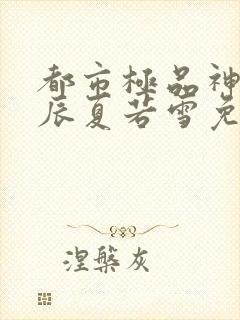 都市極品神
辰夏若雪免
涅槃灰